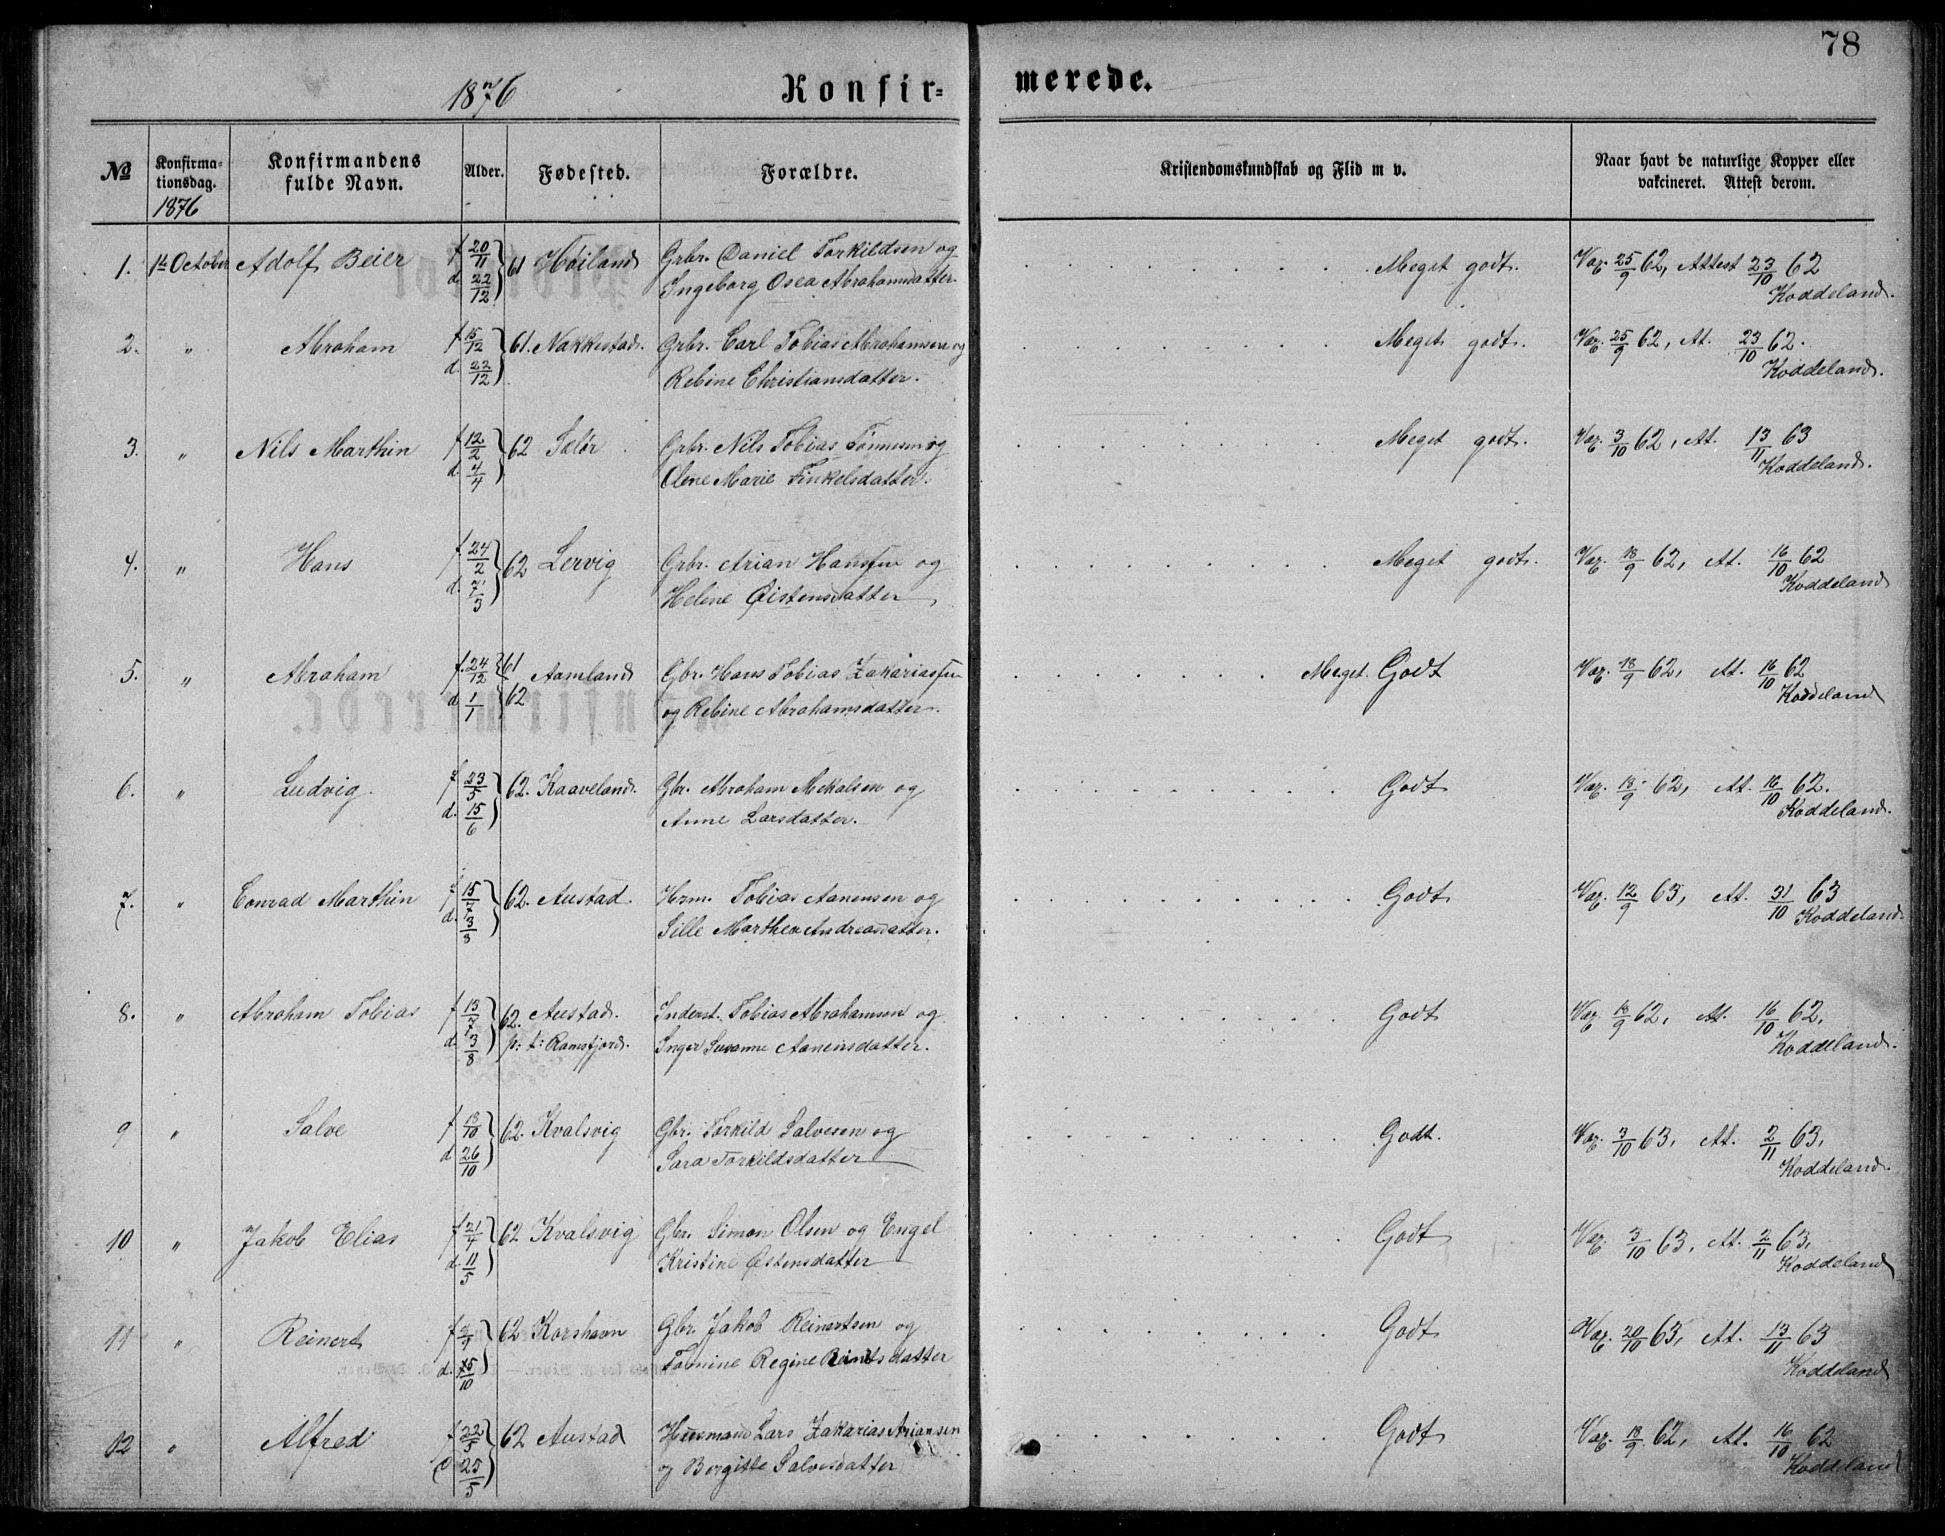 78
1876 Konfir= merede.
№ Konfirma= tionsdag. 1876 Konfirmandens fulde Navn. Alder. Fødested. Forældre. Kristendomskundskab og Flid m v. Naar havt de naturlige Kopper eller vakcineret. Attest derom.
1. 1te October Adolf Beier f. 20/11 61 Høiland Grbr. Daniel Torkildsen og Meget godt. Vac. 25/9 62, Attest 23/10 62
d. 22/12 Ingeborg Osea Abrahamsdatter. Koddeland.
2. " Abraham f. 15/12 61. Nakkestad. Grbr. Carl Tobias Abrahamsen og Meget godt. Vac. 25/9 62, At. 23/10 62.
d. 22/12 Rebine Christiansdatter. Koddeland.
3. " Nils Marthin f. 12/2 62 Sælør Grbr. Nils Tobias Tønnesen og Meget godt. Vac. 3/10 62, At. 13/11 63
d. 4/4 Olene Marie Finkelsdatter. Koddeland.
4. " Hans f. 24/2 62 Lervig Grbr. Arian Hanssen og Meget godt. Vac. 18/9 62, At. 16/10 62
d. 7/3 Helene Østensdatter Koddeland
5. " Abraham f. 24/12 61 Aamland Gbr. Hans Tobias Zakariassen Meget. Godt Vac. 18/9 62, At. 16/10 62
d. 1/1 62 og Rebine Abrahamsdatter. Koddeland
6. " Ludvig. f. 23/5 62. Kaaveland. Gbr. Abraham Mekalsen og Godt Vac. 18/9 62, At. 16/10 62.
d. 15/6 Anne Larsdatter. Koddeland.
7. " Conrad Marthin f. 15/7 62. Austad. Hzm. Tobias Aanensen og Godt Vac. 12/9 63, At. 31/10 63
d. 3/8 Sille Marthea Andreasdatter. Koddeland.
8. " Abraham Tobias f. 13/7 62. Austad. Inderst. Tobias Abrahamsen og Godt Vac. 18/9 62, At. 16/10 62,
d. 3/8 p: t: Ramsfjord. Inger Susanne Aanensdatter. Koddeland.
9 " Salve f. 13/10 62. Kvalsvig Gbr. Torkild Salvesen og Godt. Vac. 3/10 63, At. 2/11 63,
d. 26/10 Sara Torkildsdatter Koddeland.
10 " Jakob Elias f. 21/4 62 Kvalsvig Gbr. Simon Olsen og Engel Godt Vac. 3/10 63, At. 2/11 63,
d. 11/5 Kristine Østensdatter Koddeland
11 " Reinert 62 Korshavn Gbr. Jakob Reinertsen og Godt Vac. 20/10 63, At. 13/11 63
d. 15/10 Tomine Regine datter Koddeland
12 " Alfred f. 22/5 62 Austad Husmand Lars Zakarias Ariansen Godt Vac. 18/9 62, At. 16/10 62
d. 25/5 og Bergitte Salvesdatter Koddeland